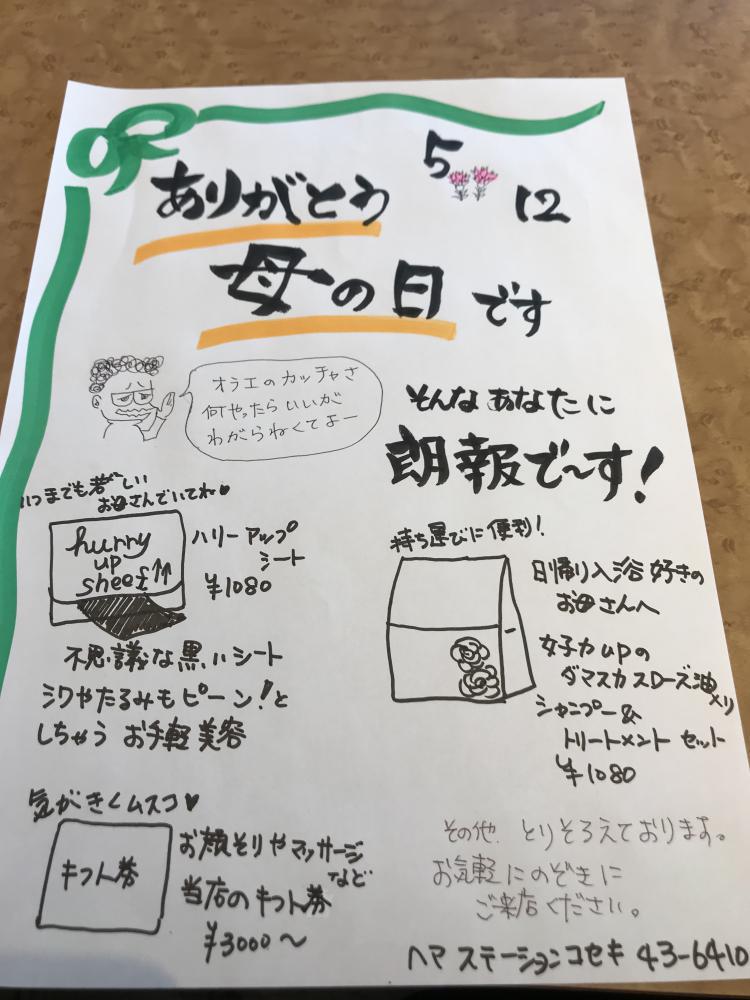 ありがとう
5 12
母の日です
オラエのカッチャさ
何やったらいいが
わがらねくてよー
そんなあなたに
朗報で〜す!
いつまでも若々しい
お母さんでいてね♥
hurry
up
sheet↑↑
ハリーアップ
シート
¥1080
不思議な黒いシート
シワやたるみもピーン!と
しちゃう お手軽美容
持ち運びに便利!
日帰り入浴好きの
お母さんへ
女子力upの
ダマスカスローズ油入り
シャンプー&
トリートメント セット
¥1080
気がきくムスコ♥
ギフト券
お顔そりやマッサージ
など
当店のギフト券
¥3000〜
その他、とりそろえております。
お気軽にのぞきに
ご来店ください。
ヘア ステーションコセキ 43-6410